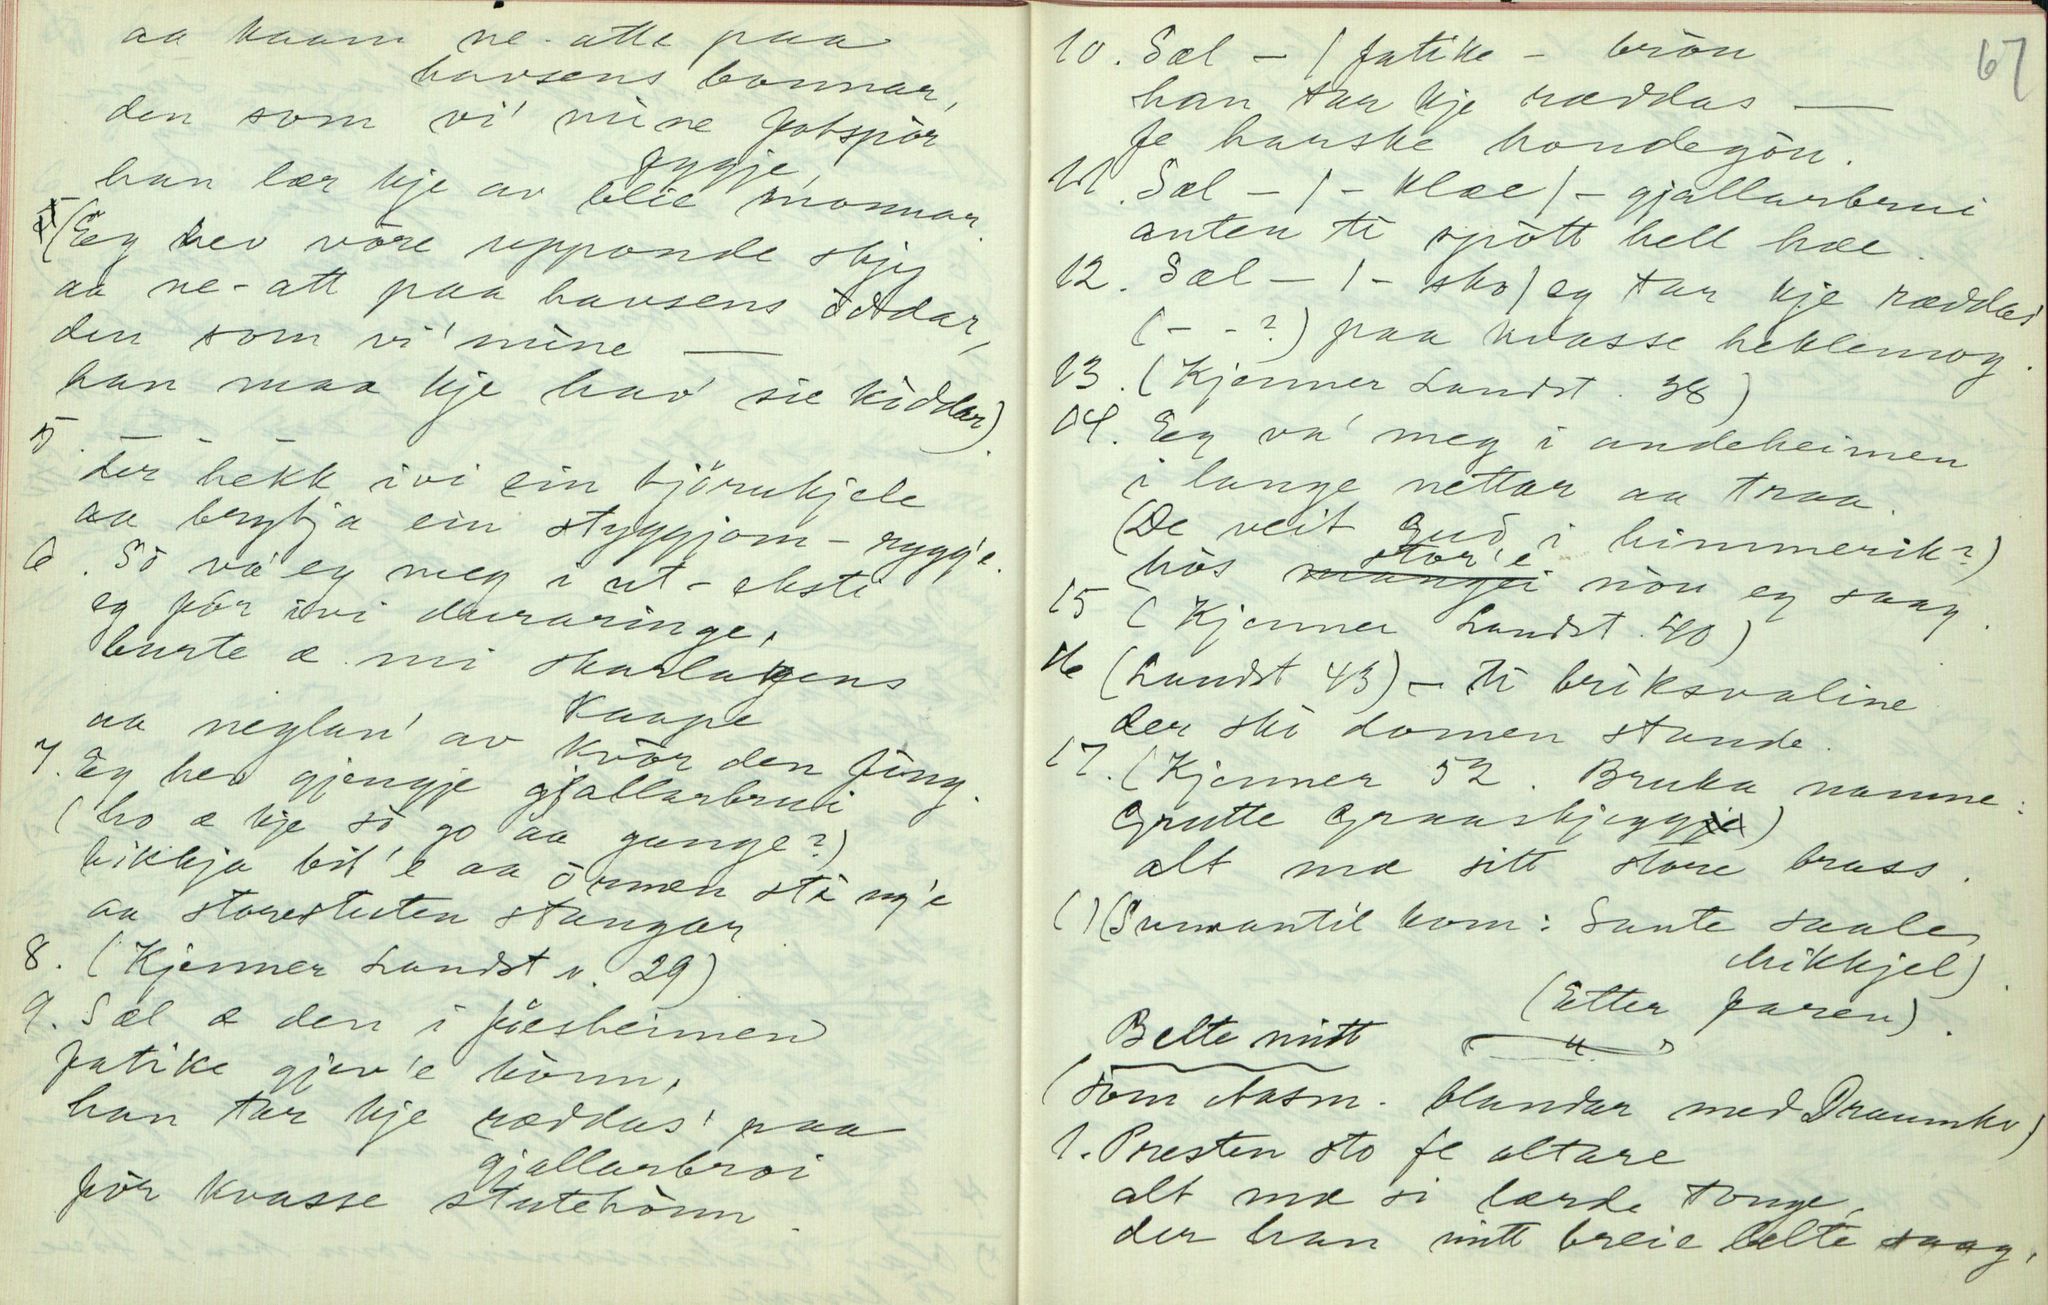 aa kaam ne-atte paa
havsens bonnar,
den som vi' mine fotspòr
fygje,
han lær kje av blie monnar.
(Eg hev vòre upponde skjy
aa ne-att paa havsens òddar,
den som vi' mine —
han maa kje hav' sie kiddar).
5. Der hekk ivi ein tjörukjele
aa brytja ein styggjom-rygg'e.
6. Sò va' eg meg i ut-eksti
eg fòr ivi duraringe,
burte æ mi skarlagens
kaape
aa neglan' av kvòr den fing.
7. Eg hev gjengje gjallarbrui
(ho æ kje sò go aa gange?)
bikkja bit'e aa òrmen sting'e
aa storestuten stangar
8. (Kjenner Landst v. 29)
9. Sæl æ den i föesheimen
fatike gjev'e kònn,
han tar kje ræddas' paa
gjallarbroi
fòr kvasse stutehònn.
67
10. Sæl — / fatike - briòn
han tar kje ræddas —
fe harske hondegòn.
11. Sæl - / - klæe / - gjallarbrui
anten ti spòtt hell hæe.
12. Sæl - / - sko / eg tar kje ræddas
(- - ?) paa kvasse heklemog.
13. (Kjenner Landst. 38)
14. Eg va' meg i andeheimen
i lange nettar aa traa.
(De veit Gud i himmerik?)
stor'e
hòs mangei nòu eg saag.
15 (Kjenner Landst. 40)
16 (Landst 43) - ti briksvaline
der ski domen stande.
17. (Kjenner 52. Bruka namne:
Grutte Graaskjeggji)
alt mæ sitt store brass.
() (Sumantil kom: Sante saale
Mikkjel)
(Etter faren).
Belte mitt
(som Aasm. blandar med Draumkv)
1. Presten sto fe altare
alt mæ si lærde tonge,
der han mitt breie belte saag,